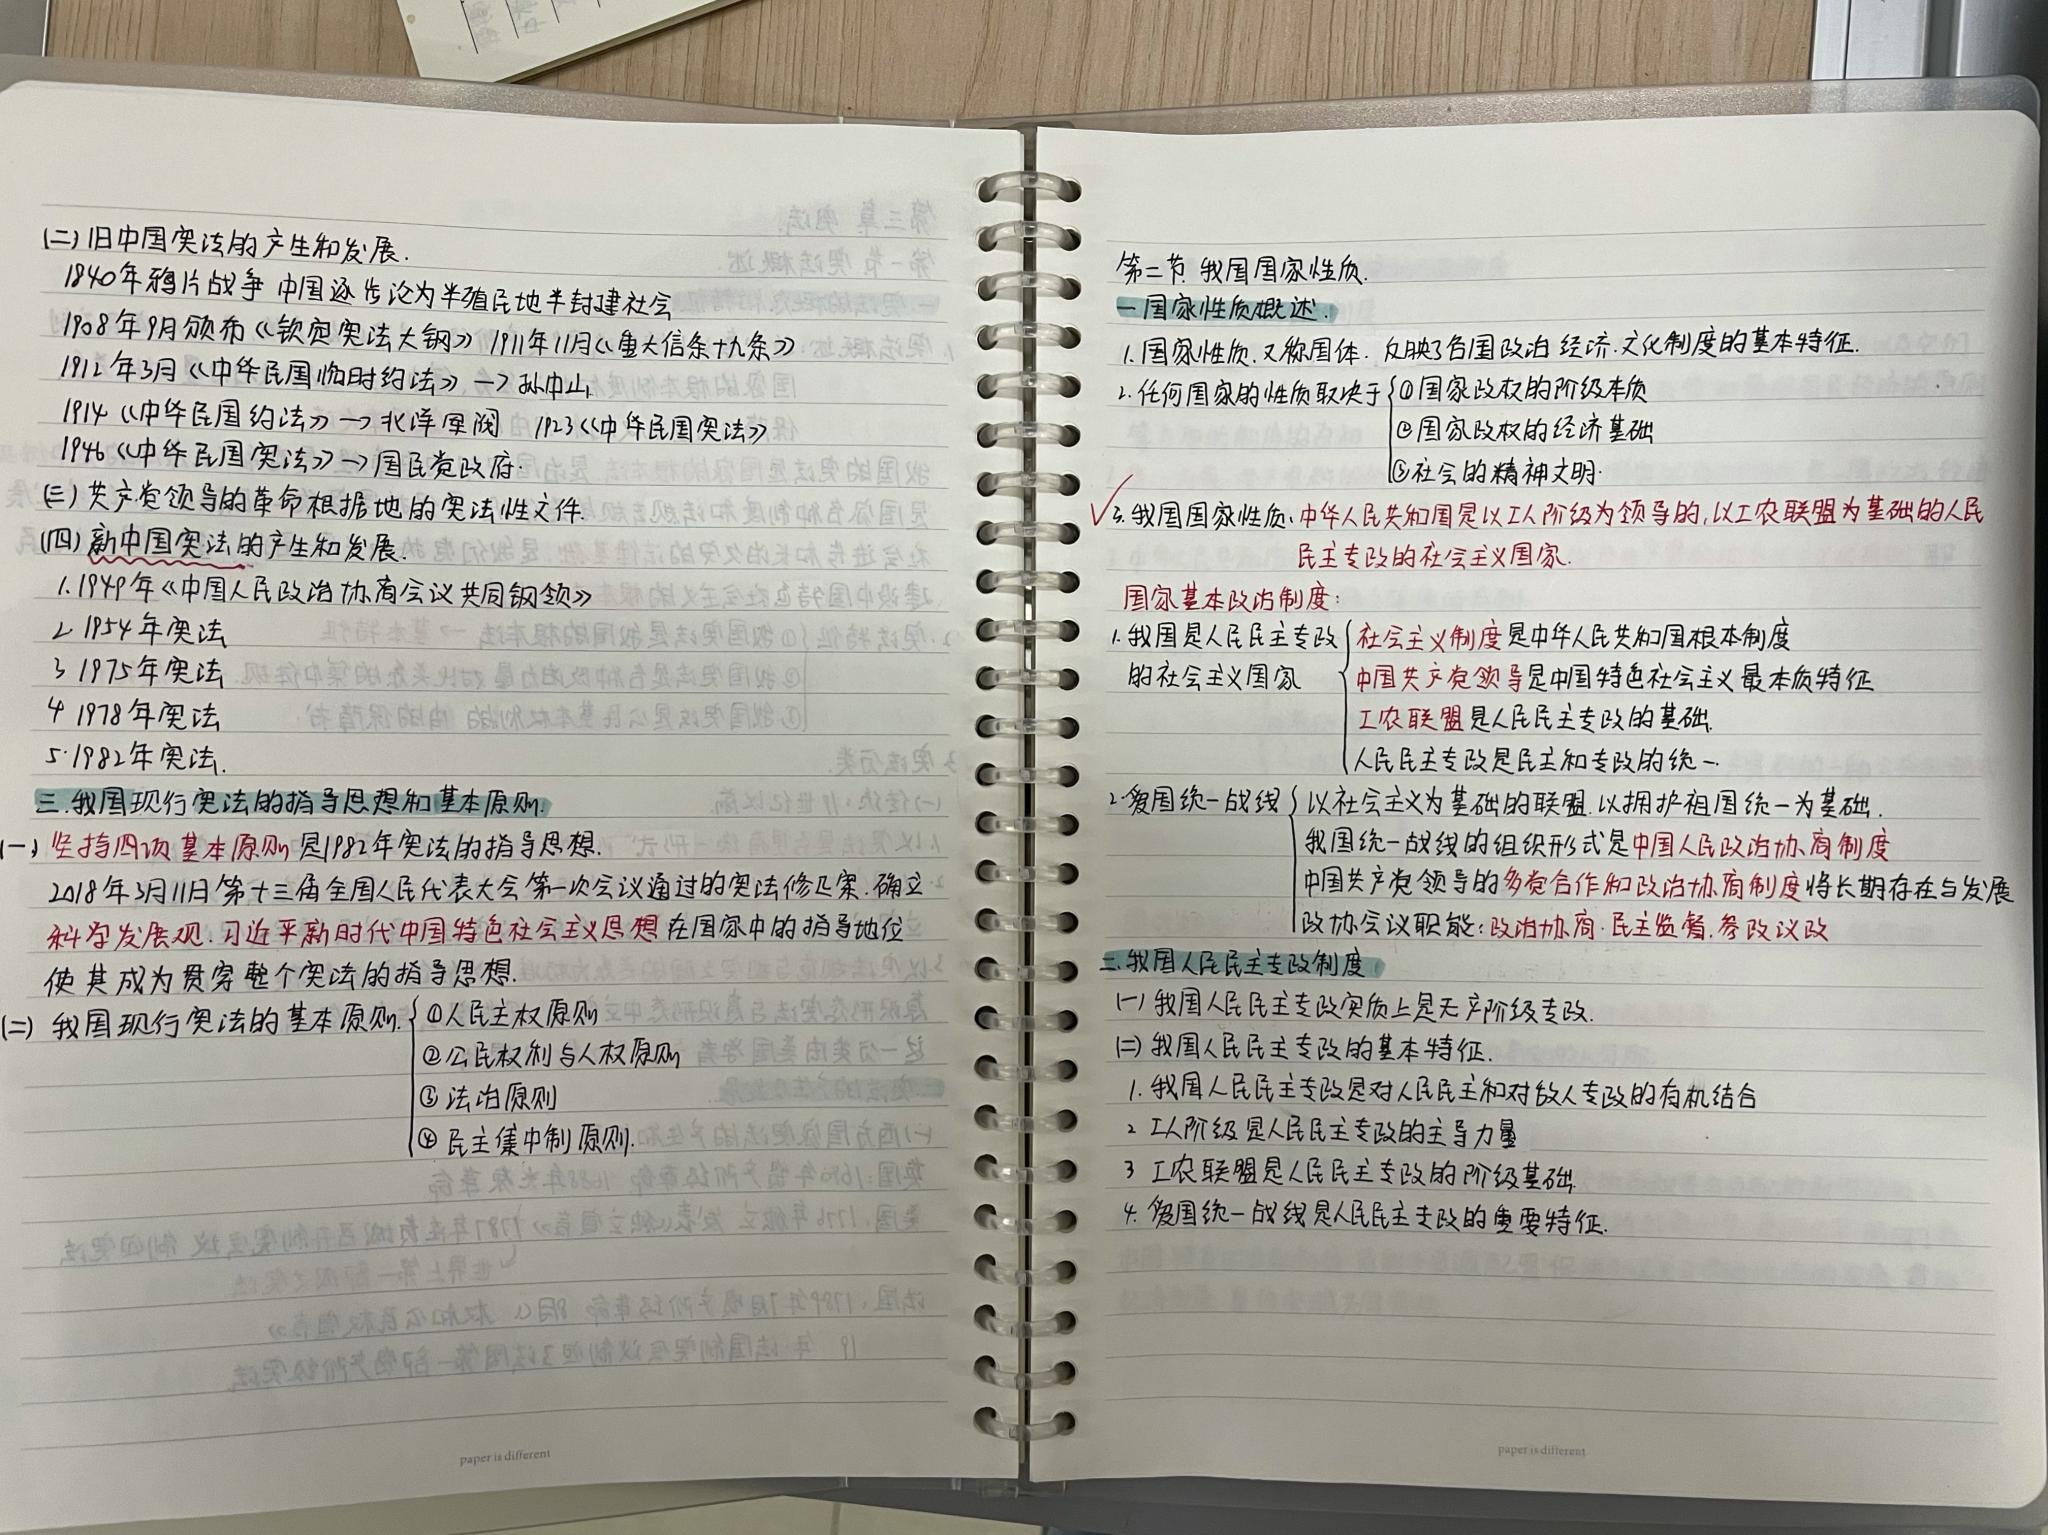 (二)旧中国宪法的产生和发展.
1840年鸦片战争 中国逐步沦为半殖民地半封建社会
1908年9月颁布《钦定宪法大钢》 1911年11月《重大信条十九条》
1912年3月《中华民国临时约法》→孙中山
1914《中华民国约法》→北洋军阀 1923《中华民国宪法》
1946《中华民国宪法》→国民党政府.
(三)共产党领导的革命根据地的宪法性文件.
(四)新中国宪法的产生和发展.
1.1949年《中国人民政治协商会议共同钢领》
2 1954年宪法
3 1975年宪法
4 1978年宪法
5.1982年宪法.
三.我国现行宪法的指导思想和基本原则.
(一)坚持四项基本原则是1982年宪法的指导思想.
2018年3月11日第十三届全国人民代表大会第一次会议通过的宪法修正案.确立
科学发展观.习近平新时代中国特色社会主义思想在国家中的指导地位
使其成为贯穿整个宪法的指导思想.
(二)我国现行宪法的基本原则.①人民主权原则
②公民权利与人权原则
③法治原则
④民主集中制原则.
paper is different
第二节.我国国家性质.
一国家性质概述.
1.国家性质.又称国体.反映了各国政治 经济.文化制度的基本特征.
2.任何国家的性质取决于①国家政权的阶级本质
②国家政权的经济基础
③社会的精神文明.
3.我国国家性质.中华人民共和国是以工人阶级为领导的,以工农联盟为基础的人民
民主专政的社会主义国家.
国家基本政治制度:
1.我国是人民民主专政 社会主义制度是中华人民共和国根本制度
的社会主义国家 中国共产党领导是中国特色社会主义最本质特征
工农联盟是人民民主专政的基础.
人民民主专政是民主和专政的统一.
2.爱国统一战线 以社会主义为基础的联盟.以拥护祖国统一为基础.
我国统一战线的组织形式是中国人民政治协商制度
中国共产党领导的多党合作和政治协商制度将长期存在与发展
政协会议职能:政治协商.民主监督.参政议政
二.我国人民民主专政制度
(一)我国人民民主专政实质上是无产阶级专政.
(二)我国人民民主专政的基本特征.
1.我国人民民主专政是对人民民主和对敌人专政的有机结合
2 工人阶级是人民民主专政的主导力量
3 工农联盟是人民民主专政的阶级基础
4.爱国统一战线是人民民主专政的重要特征.
paper is different